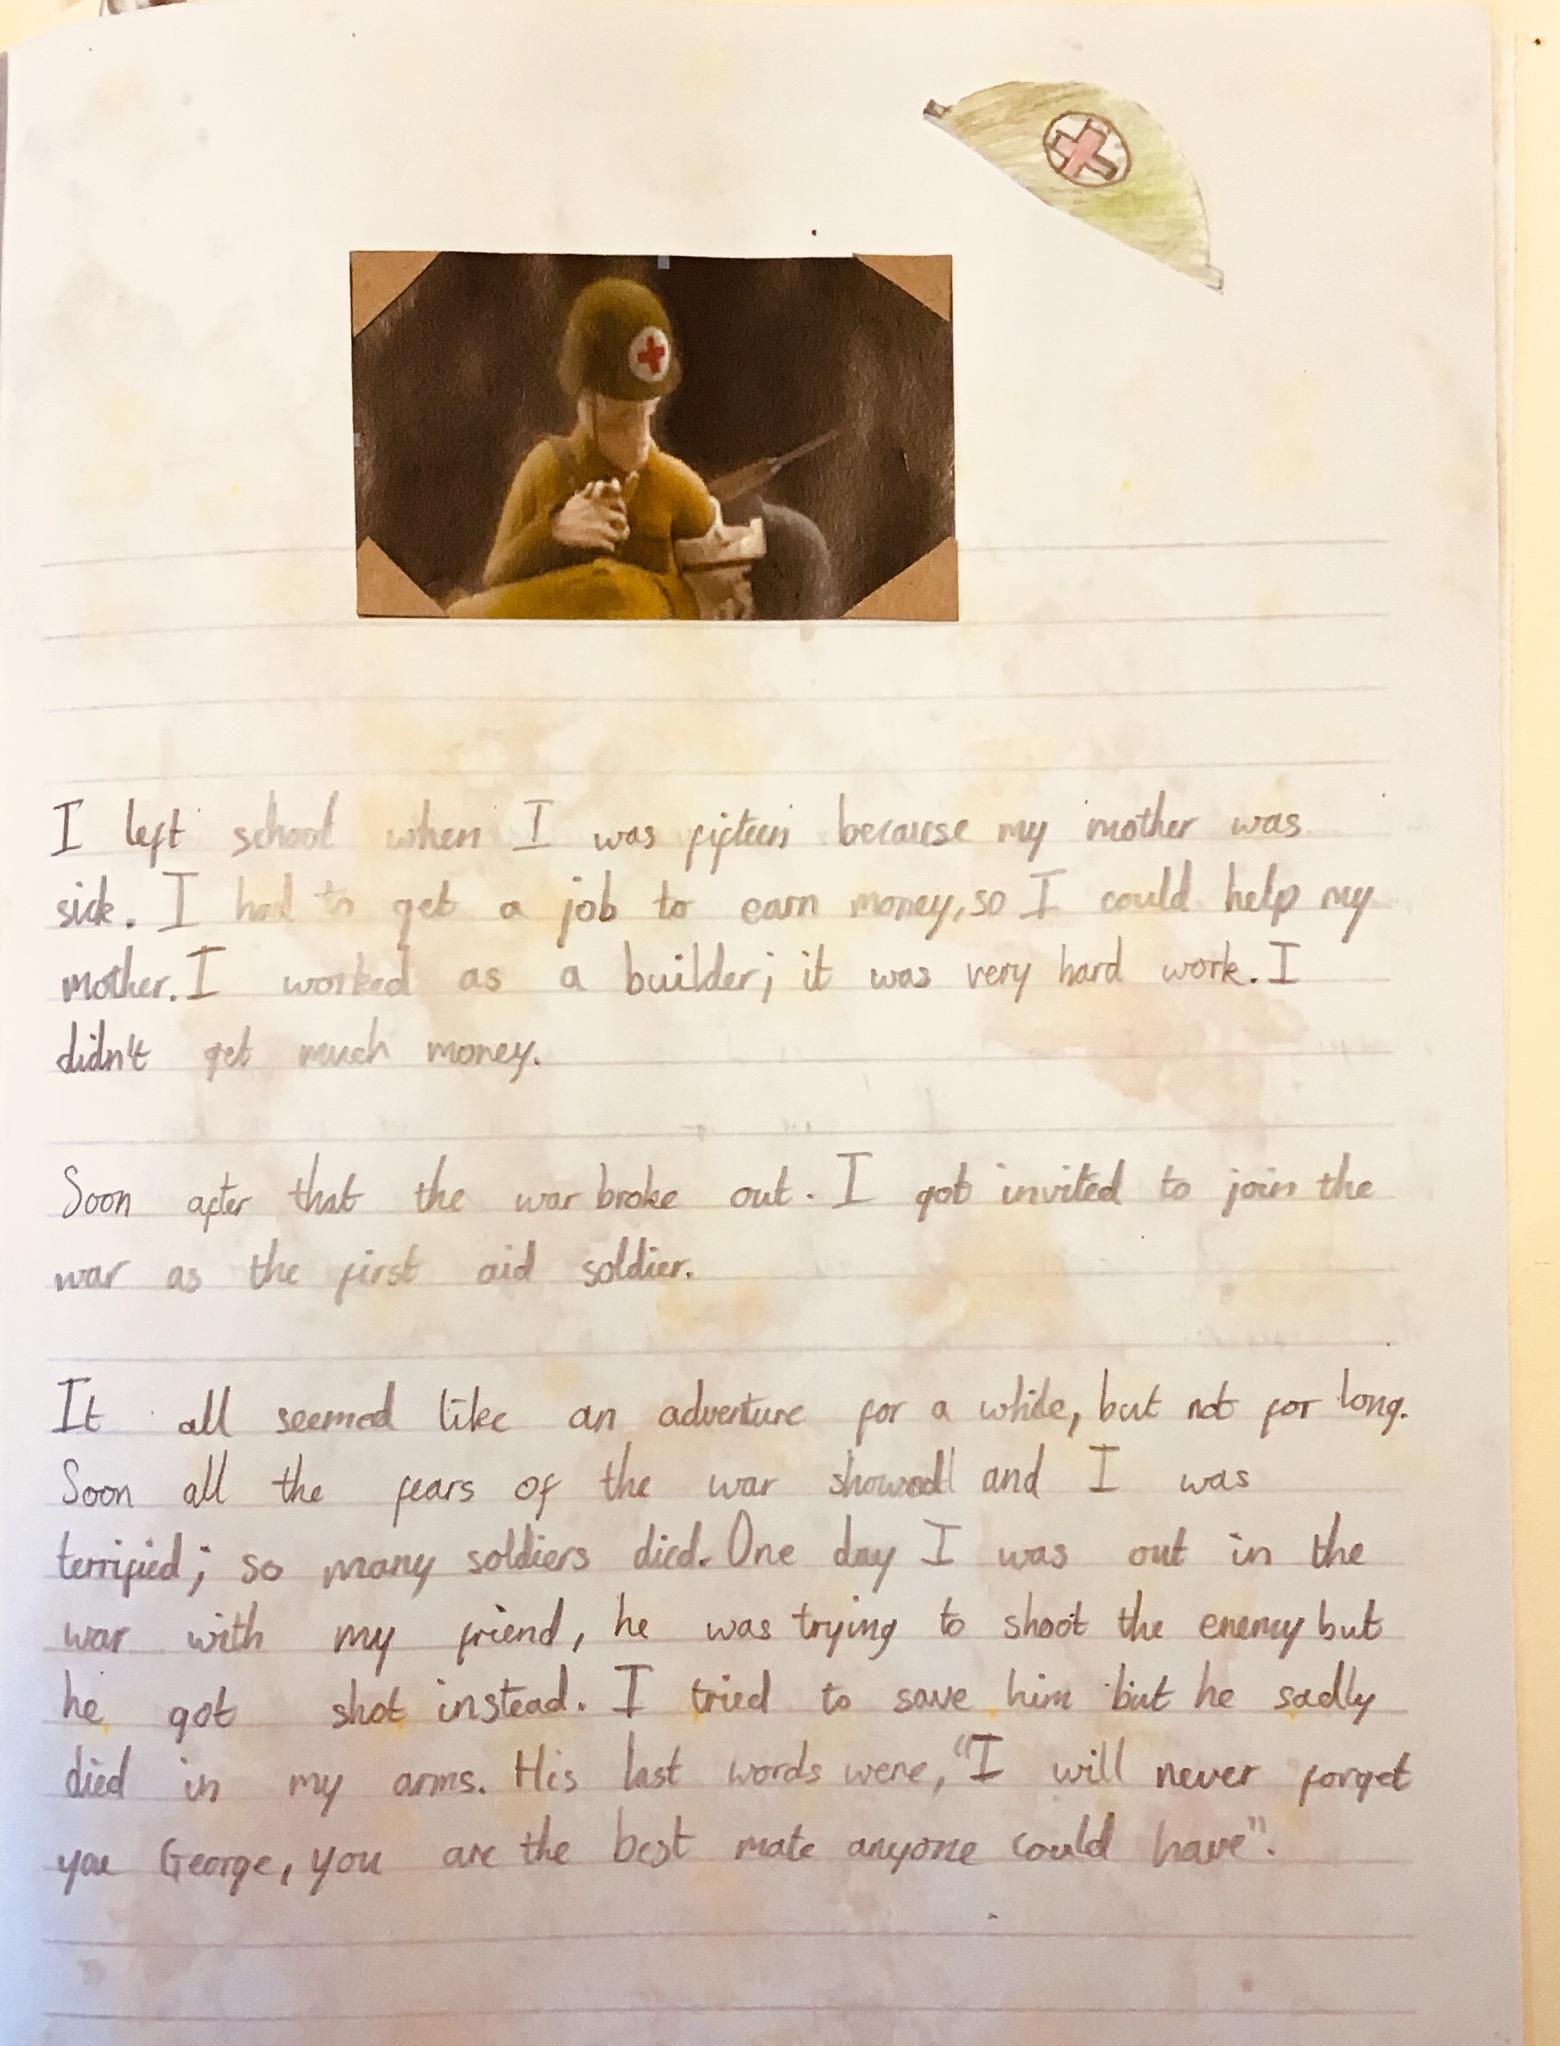 I left school when I was fifteen because my mother was
sick. I had to get a job to earn money, so I could help my
mother. I worked as a builder; it was very hard work. I
didn't get much money.
Soon after that the war broke out. I got invited to join the
war as the first aid soldier.
It all seemed like an adventure for a while, but not for long.
Soon all the fears of the war showed and I was
terrified; so many soldiers died. One day I was out in the
war with my friend, he was trying to shoot the enemy but
he got shot instead. I tried to save him but he sadly
died in my arms. His last words were, "I will never forget
you George, you are the best mate anyone could have".